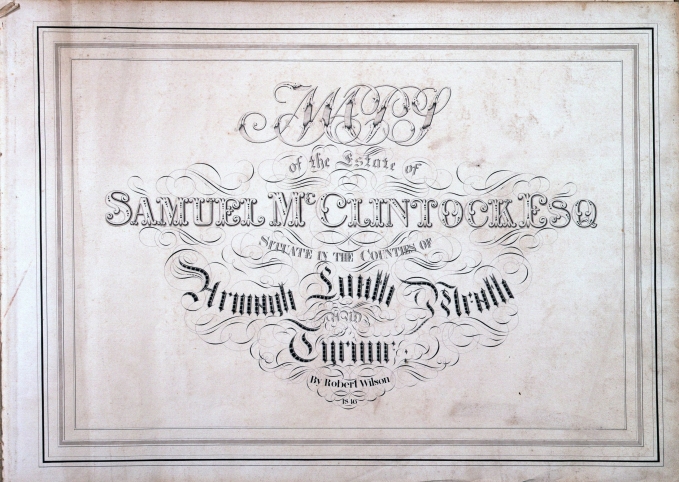 MAPS
of the Estate of
SAMUEL Mc CLINTOCK ESQ
SITUATE IN THE COUNTIES OF
Armagh Louth Meath
AND
Tyrone
By Robert Wilson
1846